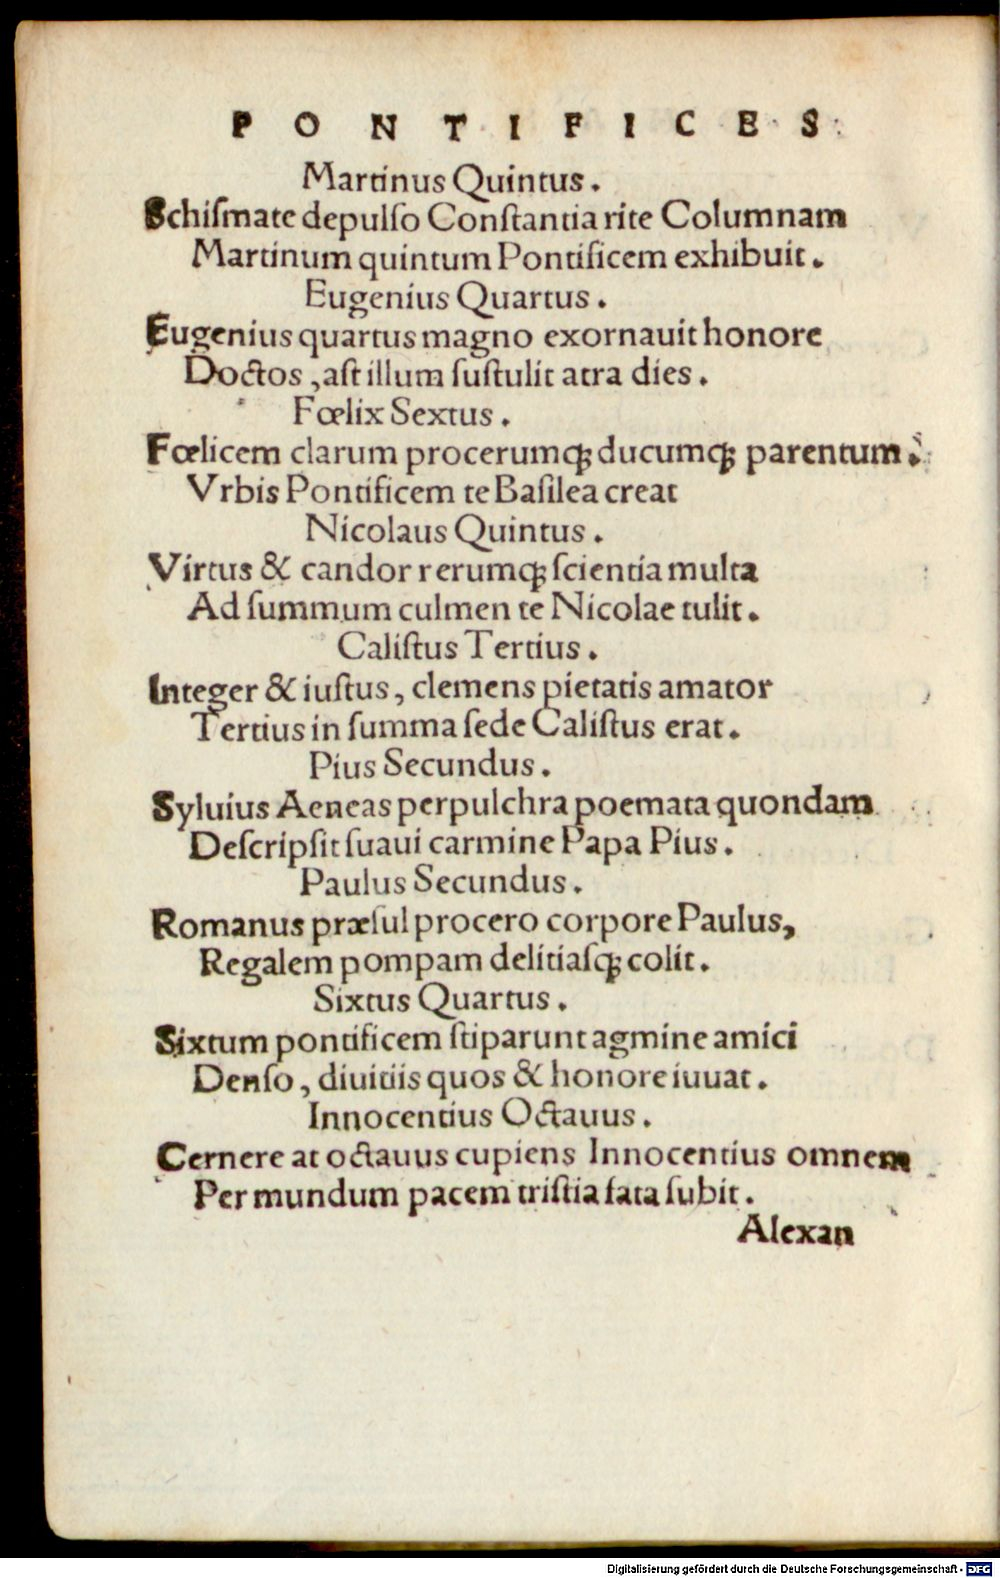 PONTIFICES
Martinus Quintus.
Schiſmate depulſo Conſtantia rite Columnam
Martinum quintum Pontificem exhibuit.
Eugenius Quartus.
Eugenius quartus magno exornauit honore
Doctos, aſt illum ſuſtulit atra dies.
Fœlix Sextus.
Fœlicem clarum procerumq; ducumq; parentum.
Vrbis Pontificem te Baſilea creat
Nicolaus Quintus.
Virtus & candor rerumq; ſcientia multa
Ad ſummum culmen te Nicolae tulit.
Caliſtus Tertius.
Integer & iuſtus, clemens pietatis amator
Tertius in ſumma ſede Caliſtus erat.
Pius Secundus.
Syluius Aeneas perpulchra poemata quondam
Deſcripſit ſuaui carmine Papa Pius.
Paulus Secundus.
Romanus præſul procero corpore Paulus,
Regalem pompam delitiaſq; colit.
Sixtus Quartus.
Sixtum pontificem ſtiparunt agmine amici
Denſo, diuitiis quos & honore iuuat.
Innocentius Octauus.
Cernere at octauus cupiens Innocentius omnem
Per mundum pacem triſtia fata ſubit.
Alexan
Digitalisierung gefördert durch die Deutsche Forschungsgemeinschaft - DFG